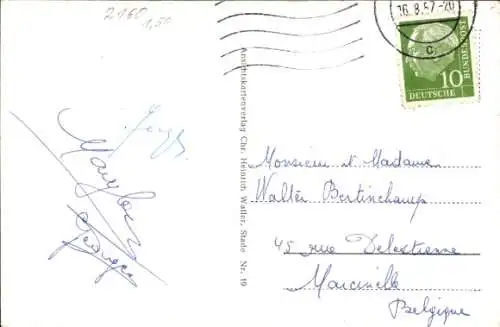 2168
1,50
16.8.57-20
c
10
DEUTSCHE
BUNDESPOST
Ansichtskartenverlag Chr. Heinrich Waller, Stade, Nr. 19
Monsieur et Madame
Walter Bertinchamp
45 rue Delestienne
Marcinelle
Belgique
Georges